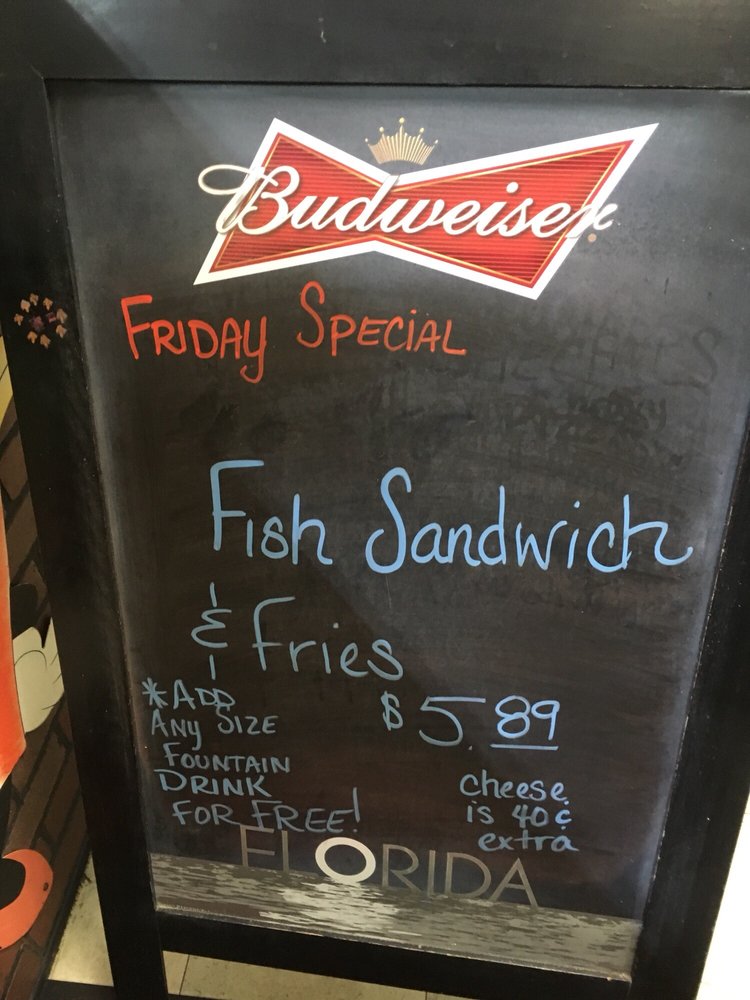 Budweiser
FRIDAY SPECIAL
Fish Sandwich
& fries
*ADD
ANY SIZE
FOUNTAIN
DRINK
FOR FREE!
$5.89
cheese
is 40¢
extra
FLORIDA